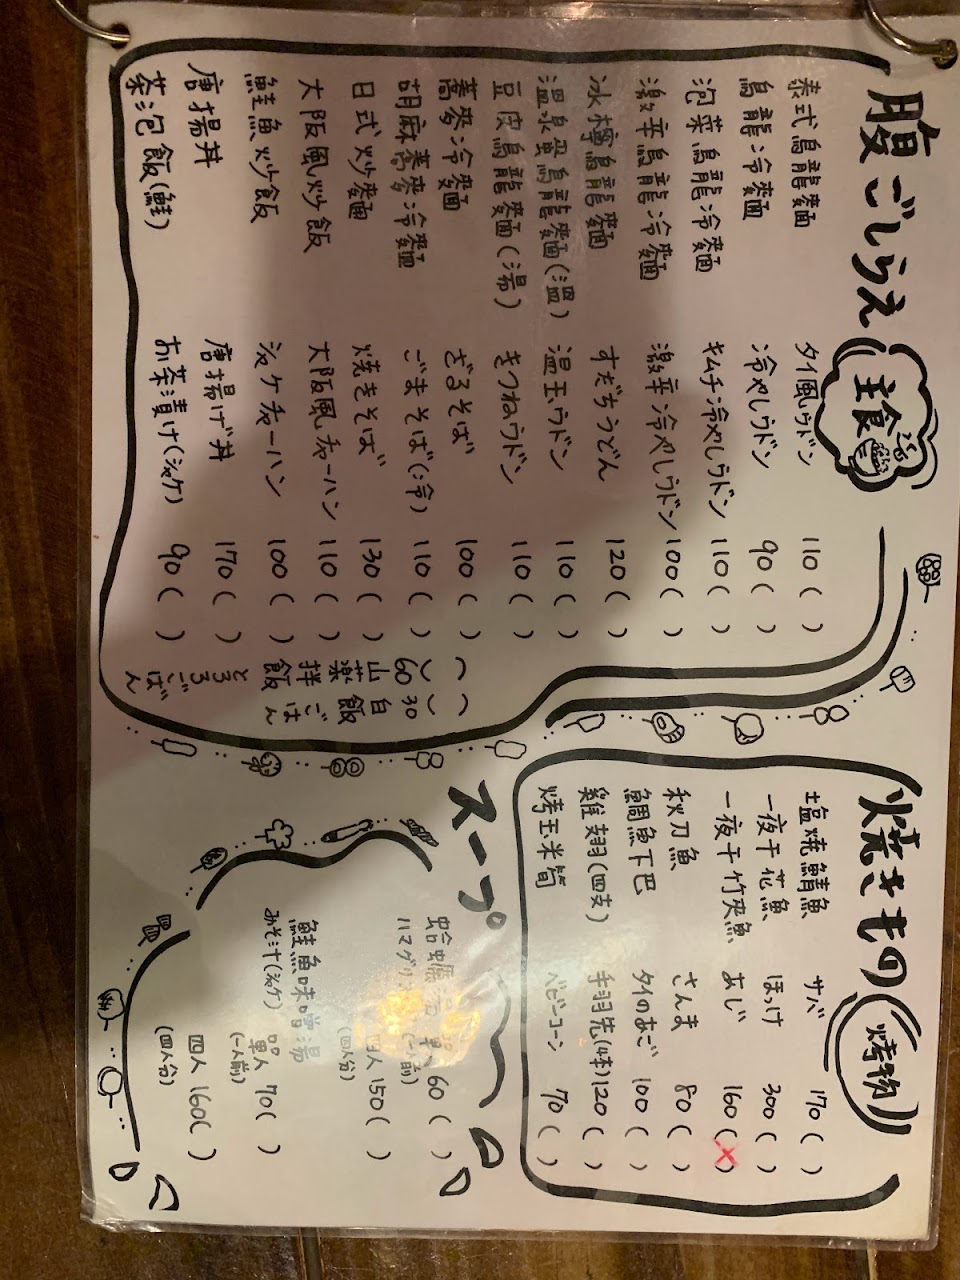 腹ごしらえ 主食
泰式烏龍麵 タイ風ウドン 110 ( )
烏龍冷麵 冷やしウドン 90 ( )
泡菜烏龍冷麵 キムチ冷やしウドン 110 ( )
激辛烏龍冷麵 激辛冷やしウドン 100 ( )
冰檸烏龍麵 すだちうどん 120 ( )
溫泉蛋烏龍麵(溫) 温玉ウドン 110 ( )
豆皮烏龍麵(湯) きつねウドン 110 ( )
蕎麥冷麵 ざるそば 100 ( )
胡麻蕎麥冷麵 ごまそば(冷) 110 ( )
日式炒麵 焼きそば 130 ( )
大阪風炒飯 大阪風チャーハン 110 ( )
鮭魚炒飯 シャケチャーハン 100 ( )
唐揚丼 唐揚げ丼 170 ( )
茶泡飯(鮭) お茶漬け(シャケ) 90 ( )
山藥拌飯 とろろごはん 60 ( )
白飯 ごはん 30 ( )
焼きもの 烤物
塩焼鯖魚 サバ 170 ( )
一夜干花魚 ほっけ 300 ( )
一夜干竹夾魚 あじ 160 (X)
秋刀魚 さんま 80 ( )
鯛魚下巴 タイのあご 100 ( )
雞翅(四支) 手羽先(4本) 120 ( )
烤玉米筒 ベビーコーン 70 ( )
スープ
蛤蠣 ハマグリ 單人(一人前) 60 ( )
四人(四人分) 150 ( )
鮭魚味噌湯 みそ汁(シャケ) 單人(一人前) 70 ( )
四人(四人分) 160 ( )